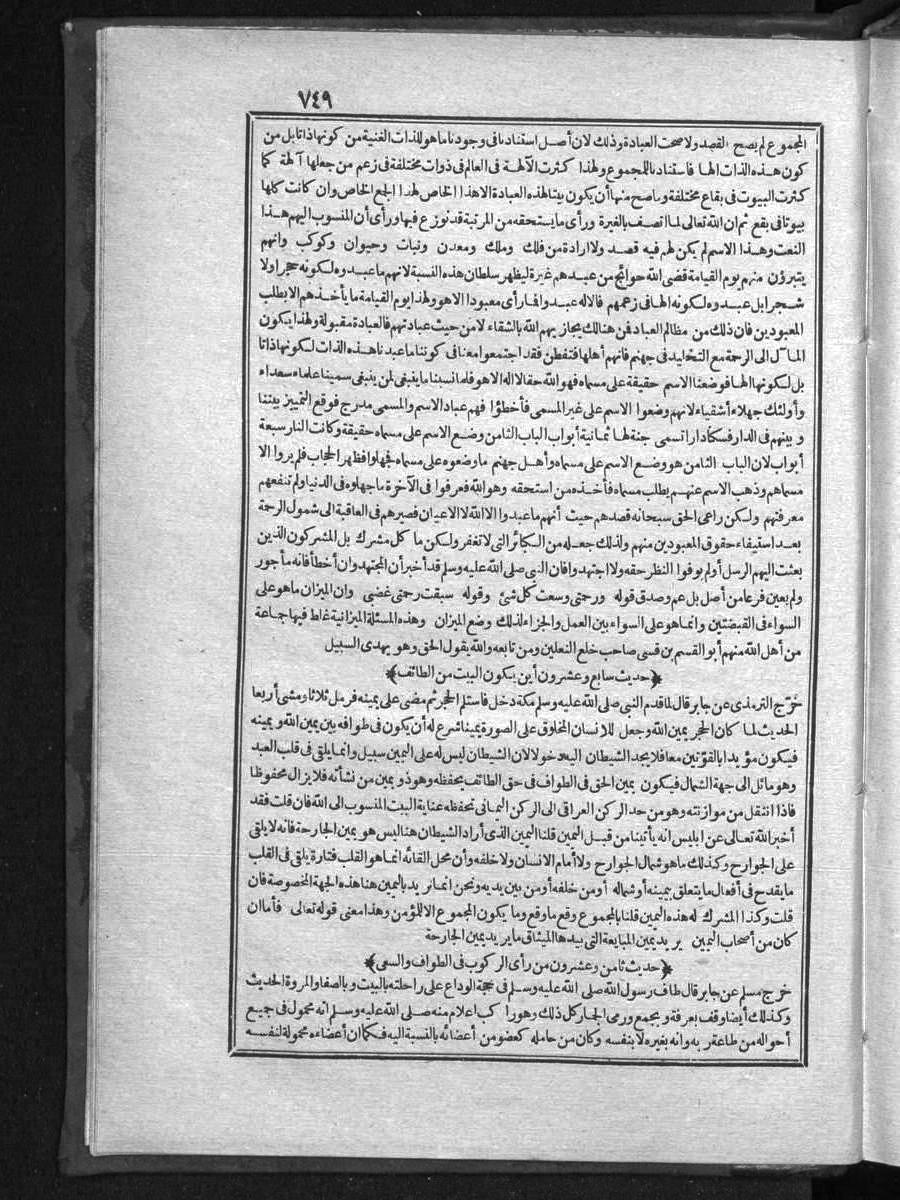 ٧٤٩
المجموع لم يصح القصد ولا صحت العبادة وذلك لان أصل استنادنا فى وجودنا ما هو للذات الغنية من كونها ذاتا بل من
كون هذه الذات الها فاستنادنا للمجموع ولهذا كثرت الآلهة فى العالم فى ذوات مختلفة فى زعم من جعلها آلهة كما
كثرت البيوت فى بقاع مختلفة وما صح منها أن يكون بيتا لهذه العبادة الا هذا الخاص لهذا الجمع الخاص وان كانت كلها
بيوتا فى بقع ثم ان الله تعالى لما اتصف بالغيرة ورأى ما يستحقه من المرتبة قد نوزع فيها ورأى أن المنسوب اليهم هذا
النعت وهذا الاسم لم يكن لهم فيه قصد ولا ارادة من فلك وملك ومعدن ونبات وحيوان وكوكب وانهم
يتبرؤن منهم يوم القيامة قضى الله حوائج من عبدهم غيرة ليظهر سلطان هذه النسبة لانهم ما عبدوه لكونه حجرا ولا
شجرا بل عبدوه لكونه الها فى زعمهم فالاله عبدوا فما رأى معبودا الا هو ولهذا يوم القيامة ما يأخذهم الا بطلب
المعبودين فان ذلك من مظالم العباد فمن هنالك يجازيهم الله بالشقاء لا من حيث عبادتهم فالعبادة مقبولة ولهذا يكون
المآل الى الرحمة مع التخليد فى جهنم فانهم أهلها فتفطن فقد اجتمعوا معنا فى كوننا ما عبدنا هذه الذات لكونها ذاتا
بل لكونها الها فوضعنا الاسم حقيقة على مسماه فهو الله حقا لا اله الا هو فلما نسبنا ما ينبغى لمن ينبغى سمينا علماء سعداء
وأولئك جهلاء أشقياء لانهم وضعوا الاسم على غير المسمى فأخطؤا فهم عباد الاسم والمسمى مدرج فوقع التمييز بيننا
وبينهم فى الدار فسكنا دارا تسمى جنة لها ثمانية أبواب الباب الثامن وضع الاسم على مسماه حقيقة وكانت النار سبعة
أبواب لان الباب الثامن هو وضع الاسم على مسماه وأهل جهنم ما وضعوه على مسماه فجهلوا فظهر الحجاب فلم يروا الا
مسماهم وذهب الاسم عنهم يطلب مسماه فأخذه من استحقه وهو الله فعرفوا فى الآخرة ما جهلوه فى الدنيا ولم تنفعهم
معرفتهم ولكن راعى الحق سبحانه قصدهم حيث أنهم ما عبدوا الا الله لا الاعيان فصيرهم فى العاقبة الى شمول الرحمة
بعد استيفاء حقوق المعبودين منهم ولذلك جعله من الكبائر التى لا تغفر ولكن ما كل مشرك بل المشركون الذين
بعثت اليهم الرسل أو لم يوفوا النظر حقه ولا اجتهدوا فان النبى صلى الله عليه وسلم قد أخبر أن المجتهد وان أخطأ فانه مأجور
ولم يعين فرعا من أصل بل عم وصدق قوله ورحمتى وسعت كل شئ وقوله سبقت رحمتى غضبى وان الميزان ما هو على
السواء فى القبضتين وانما هو على السواء بين العمل والجزاء لذلك وضع الميزان وهذه المسئلة الميزانية غلط فيها جماعة
من أهل الله منهم أبو القسم بن قسى صاحب خلع النعلين ومن تابعه والله يقول الحق وهو يهدى السبيل
﴿حديث سابع وعشرون أين يكون البيت من الطائف﴾
خرج الترمذى عن جابر قال لما قدم النبى صلى الله عليه وسلم مكة دخل فاستلم الحجر ثم مضى على يمينه فرمل ثلاثا ومشى أربعا
الحديث لما كان الحجر يمين الله وجعل للانسان المخلوق على الصورة يمينا شرع له أن يكون فى طوافه بين يمين الله ويمينه
فيكون مؤيدا بالقوّتين معا فلا يجد الشيطان اليه دخولا لان الشيطان ليس له على اليمين سبيل وانما يلقى فى قلب العبد
وهو مائل الى جهة الشمال فيكون يمين الحق فى الطواف فى حق الطائف يحفظه وهو ذو يمين من نشأته فلا يزال محفوظا
فاذا انتقل من موازنته وهو من حد الركن العراقى الى الركن اليمانى تحفظه عناية البيت المنسوب الى الله فان قلت فقد
أخبر الله تعالى عن ابليس انه يأتينا من قبل اليمين قلنا اليمين الذى أراد الشيطان هنا ليس هو يمين الجارحة فانه لا يلقى
على الجوارح وكذلك ما هو شمال الجوارح ولا أمام الانسان ولا خلفه وأن محل القائه انما هو القلب فتارة يلقى فى القلب
ما يقدح فى أفعال ما يتعلق بيمينه أو شماله أو من خلفه أو من بين يديه ونحن انما نريد باليمين هنا هذه الجهة المخصوصة فان
قلت وكذا المشرك له هذه اليمين قلنا بالمجموع وقع ما وقع وما يكون المجموع الا للمؤمن وهذا معنى قوله تعالى فأما ان
كان من أصحاب اليمين يريد يمين المبايعة التى بيدها الميثاق ما يريد يمين الجارحة
﴿حديث ثامن وعشرون من رأى الركوب فى الطواف والسعى﴾
خرج مسلم عن جابر قال طاف رسول الله صلى الله عليه وسلم فى حجة الوداع على راحلته بالبيت وبالصفا والمروة الحديث
وكذلك أيضا وقف بعرفة وبجمع ورمى الجمار كل ذلك وهو راكب اعلام منه صلى الله عليه وسلم انه محمول فى جميع
أحواله من طاعة ربه وانه بغيره لا بنفسه وكان من حامله كعضو من أعضائه بالنسبة اليه فكما ان أعضاءه محمولة لنفسه